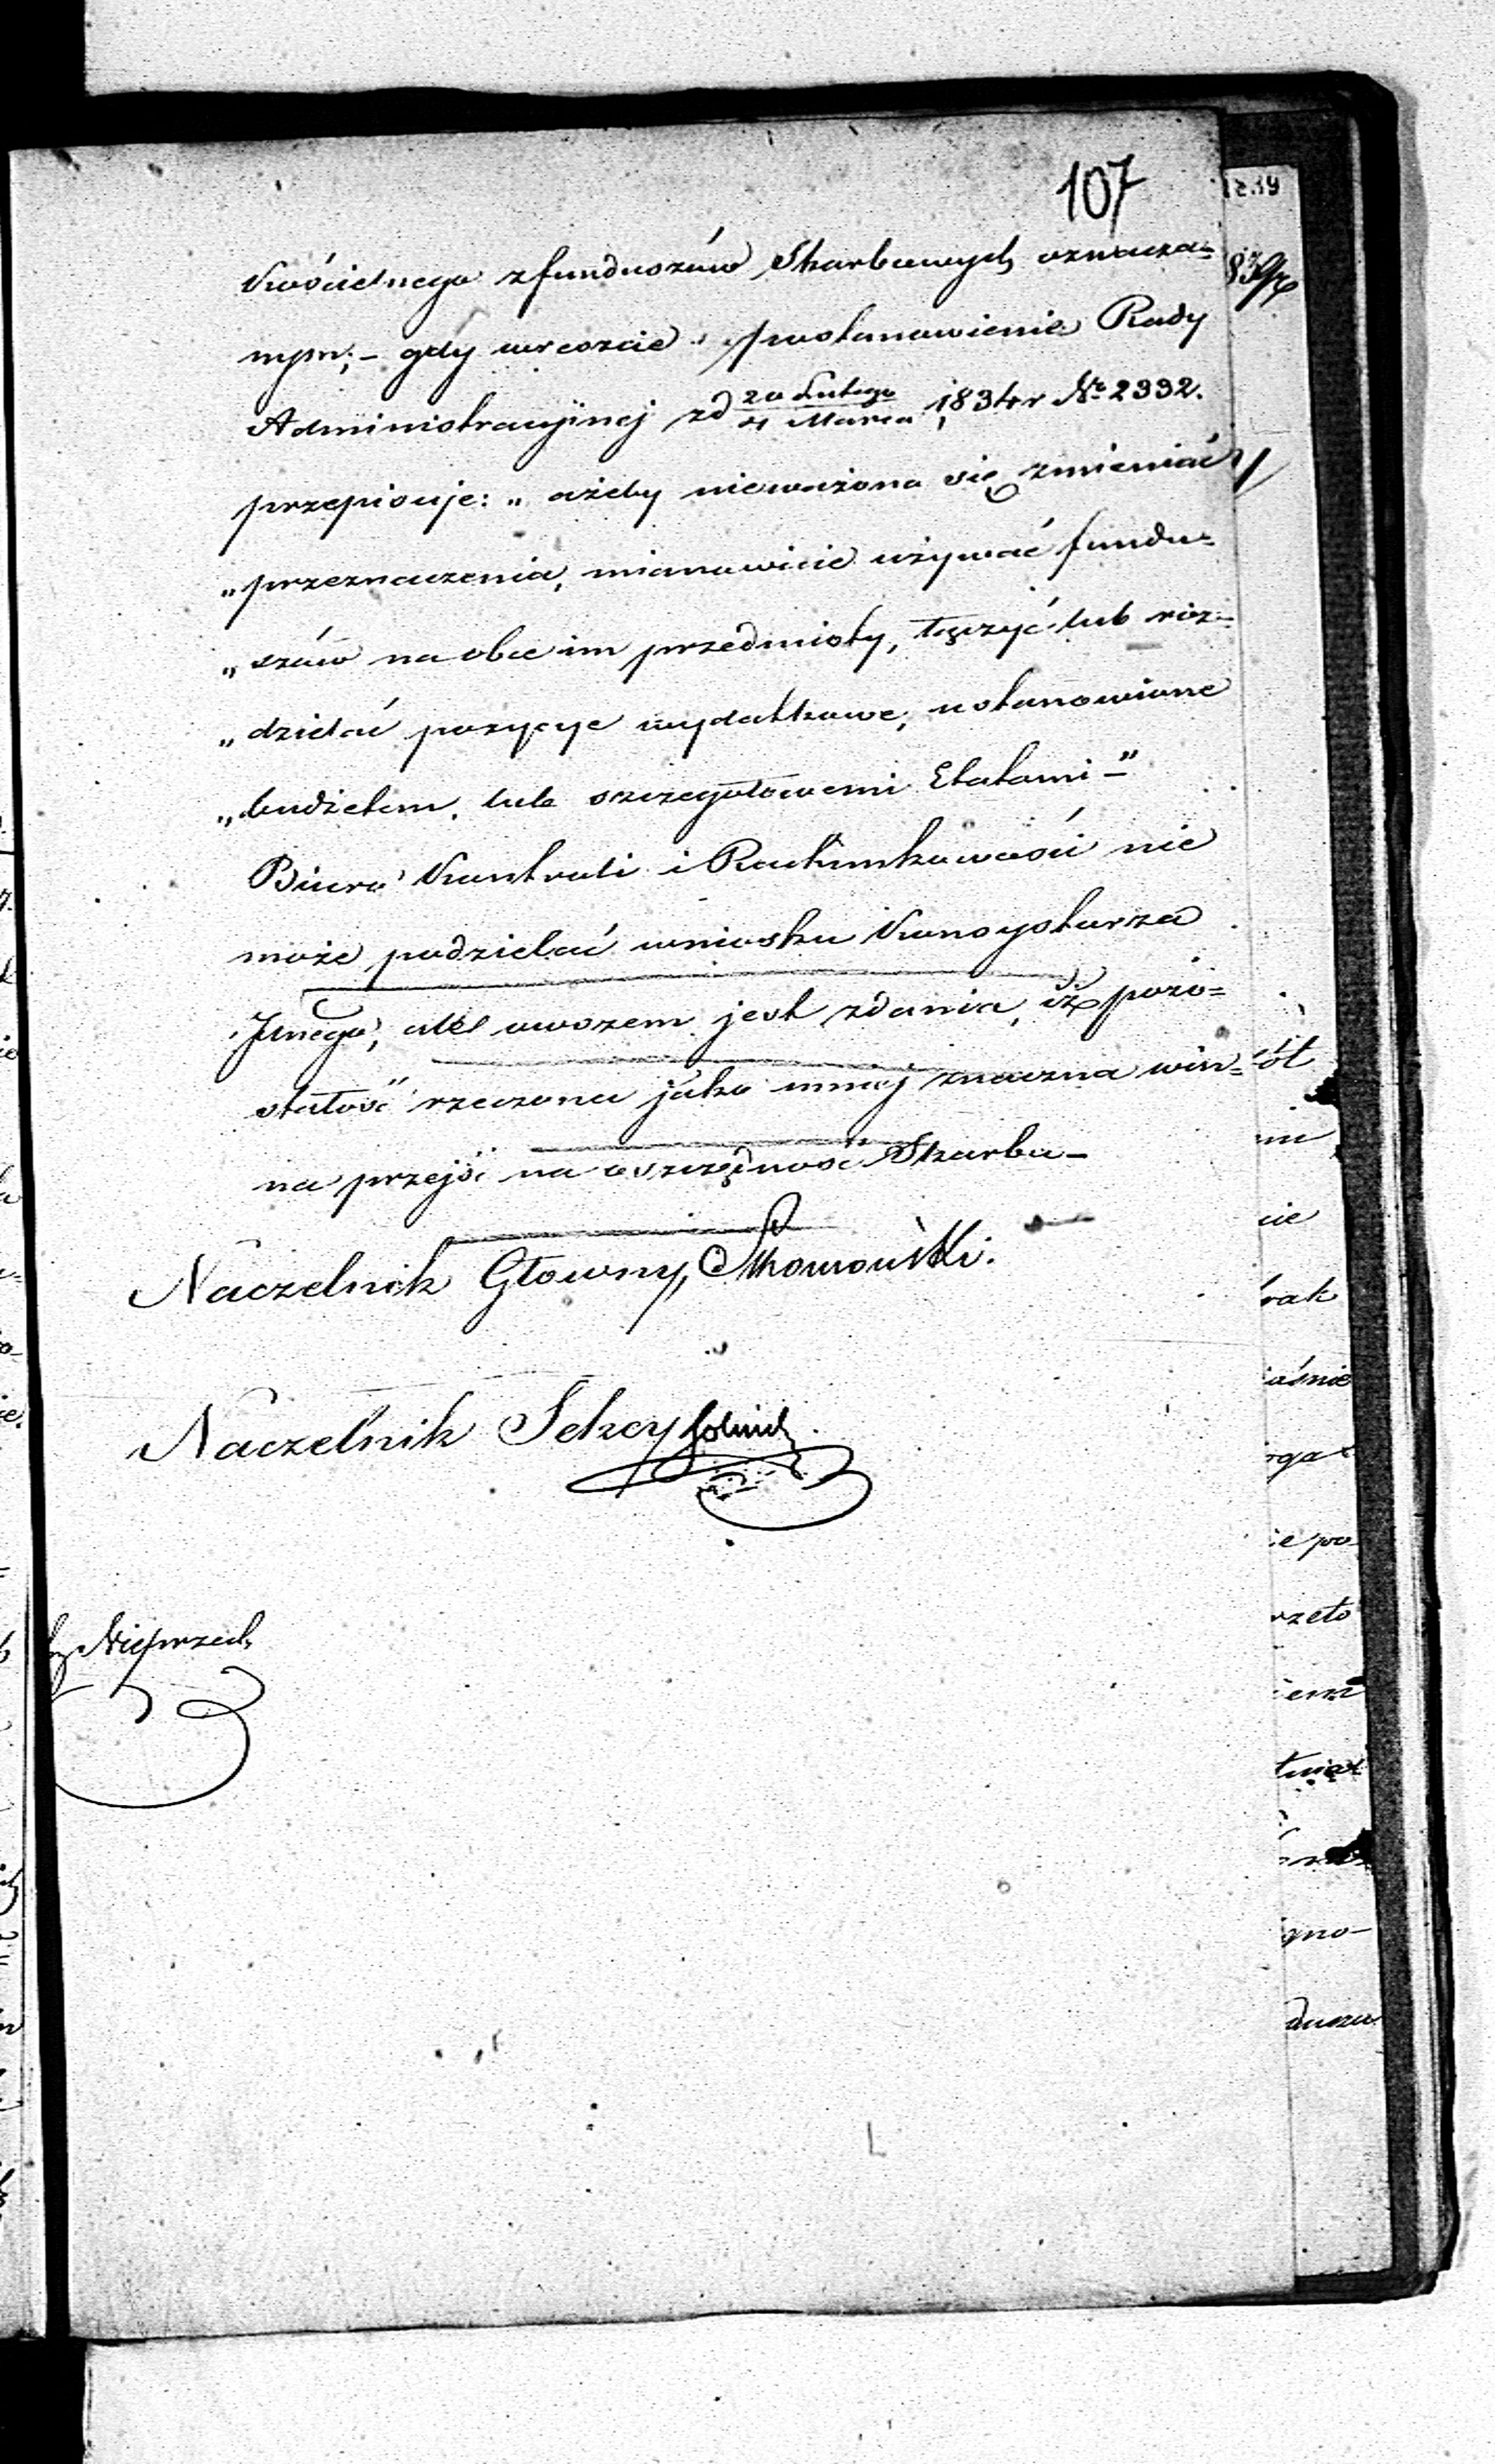 107
Kościelnego z funduszów Skarbowych oznacza=
nym; – gdy wreszcie postanowienie Rady
Administracyjnej z d 20 Lutego / 4 Marca 1834 r № 2332.
przepisuje: „ ażeby nieważono się zmieniać
„przeznaczenia, mianowicie używać fundu=
„szów na obce im przedmioty, łączyć lub roz=
„dzielać pozycye wydatkowe, ustanowione
„budżetem, lub szczegółowemi Etatami –"
Biuro Kontroli i Rachunkowości nie
może podzielać wniosku Konsystorza
Jnego, ale owszem jest zdania, iż pozo=
stałość rzeczona jako mniej znaczna win=
na przejść na oszczędność Skarbu –
Naczelnik Główny,
Naczelnik Sekcy
Nieprzech